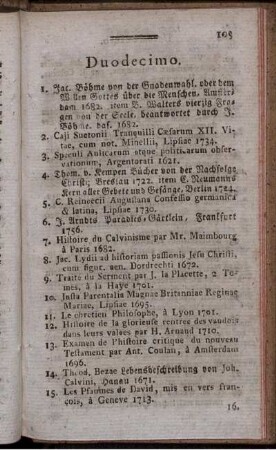 103
Duodecimo.
1. Jac. Böhme von der Gnadenwahl, oder dem
Willen Gottes über die Menschen. Amster-
dam 1682. item B. Walters vierzig Fra-
gen von der Seele, beantwortet durch J.
Böhme. das. 1682.
2. Caji Suetonii Tranquilli Cæsarum XII. Vi-
tæ, cum not. Minellii, Lipsiae 1734.
3. Speculi Aulicarum atque politicarum obser-
vationum, Argentorati 1621.
4. Thom. v. Kempen Bücher von der Nachfolge
Christi; Breslau 1722. item C. Neumanns
Kern aller Gebete und Gesänge, Berlin 1724.
5. C. Reineccii Augustana Confessio germanica
& latina, Lipsiae 1730.
6. J. Arndts Paradies-Gärtlein, Frankfurt
1756.
7. Histoire du Calvinisme par Mr. Maimbourg
à Paris 1682.
8. Jac. Lydii ad historiam passionis Jesu Christi,
cum figur. ven. Dordrechti 1672.
9. Traité du Serment par J. la Placette, 2 To-
mes, à la Haye 1701.
10. Justa Parentalia Magnae Britanniae Reginae
Mariae, Lipsiae 1695.
11. Le chretien Philosophe, à Lyon 1701.
12. Histoire de la glorieuse rentrée des vaudois
dans leurs valées par H. Arnaud 1710.
13. Examen de l'histoire critique du nouveau
Testament par Ant. Coulan, à Amsterdam
1696.
14. Theod. Bezae Lebensbeschreibung von Joh.
Calvini, Hanau 1671.
15. Les Pseaumes de David, mis en vers fran-
çois, à Geneve 1713.
16.